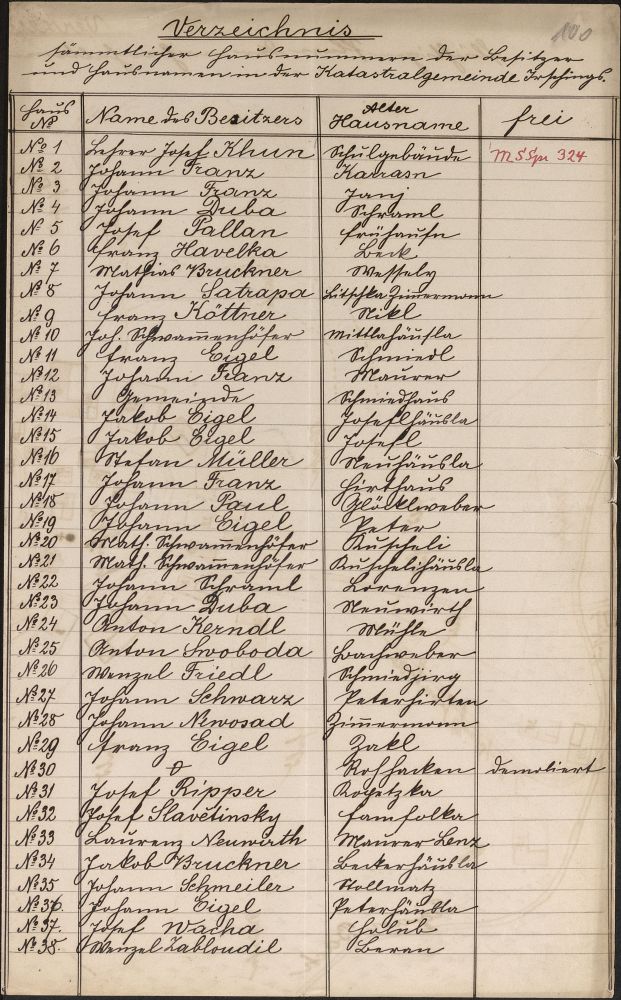 100
Verzeichnis
sämmtlicher Hausnummern der Besitzer
und Hausnamen in der Katastralgemeinde Irschings.
Haus № Name des Besitzers Alter Hausname frei
№ 1 Lehrer Josef Khun Schulgebäude
№ 2 Johann Franz Karasn
№ 3 Johann Franz Janj
№ 4 Johann Duba Schraml
№ 5 Josef Pallan Frühaufn
№ 6 Franz Havelka Beck
№ 7 Mathias Bruckner Wessely
№ 8 Johann Satrapa Litschka Zim̅ermann
№ 9 Franz Köttner Nikl
№ 10 Joh. Schwam̅enhöfer Mittlahäusla
№ 11 Franz Eigel Schmiedl
№ 12 Johann Franz Maurer
№ 13 Gemeinde Schmiedhaus
№ 14 Jakob Eigel Joseflhäusla
№ 15 Jakob Eigel Josefl
№ 16 Stefan Müller Neuhäusla
№ 17 Johann Franz Hirthaus
№ 18 Johann Paul Glöcklweber
№ 19 Johann Eigel Peter
№ 20 Math. Schwam̅enhöfer Kuscheli
№ 21 Math. Schwam̅enhöfer Kuschelihäusla
№ 22 Johann Schraml Lorenzen
№ 23 Johann Duba Neuwirth
№ 24 Anton Kerndl Mühle
№ 25 Anton Swoboda Bachweber
№ 26 Wenzel Friedl Schmiedjirg
№ 27 Johann Schwarz Peterhirten
№ 28 Johann Newosad Zim̅ermann
№ 29 Franz Eigel Zakl
№ 30 Roßhacken demoliert
№ 31 Josef Ripper Kopetzka
№ 32 Josef Slavětinsky Hamsolka
№ 33 Laurenz Neuwirth Maurer Lenz
№ 34 Jakob Bruckner Beckerhäusla
№ 35 Johann Schmeiler Stollmatz
№ 36. Johann Eigel Peterhäusla
№ 37. Josef Wacha Holub
№ 38. Wenzel Zabloudil Beran